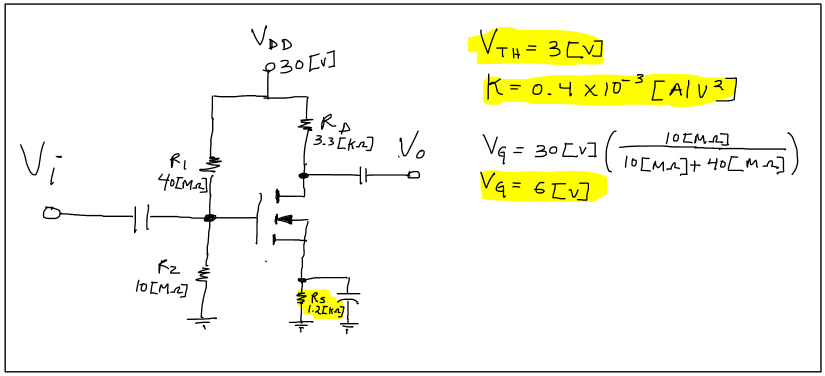 V_DD
30[V]
R_D
3.3[KΩ]
V_o
V_i
R_1
40[MΩ]
R_2
10[MΩ]
R_S
1.2[KΩ]
V_TH = 3[V]
K = 0.4 × 10^-3 [A/V^2]
V_G = 30[V] ( 10[MΩ] / 10[MΩ] + 40[MΩ] )
V_G = 6[V]